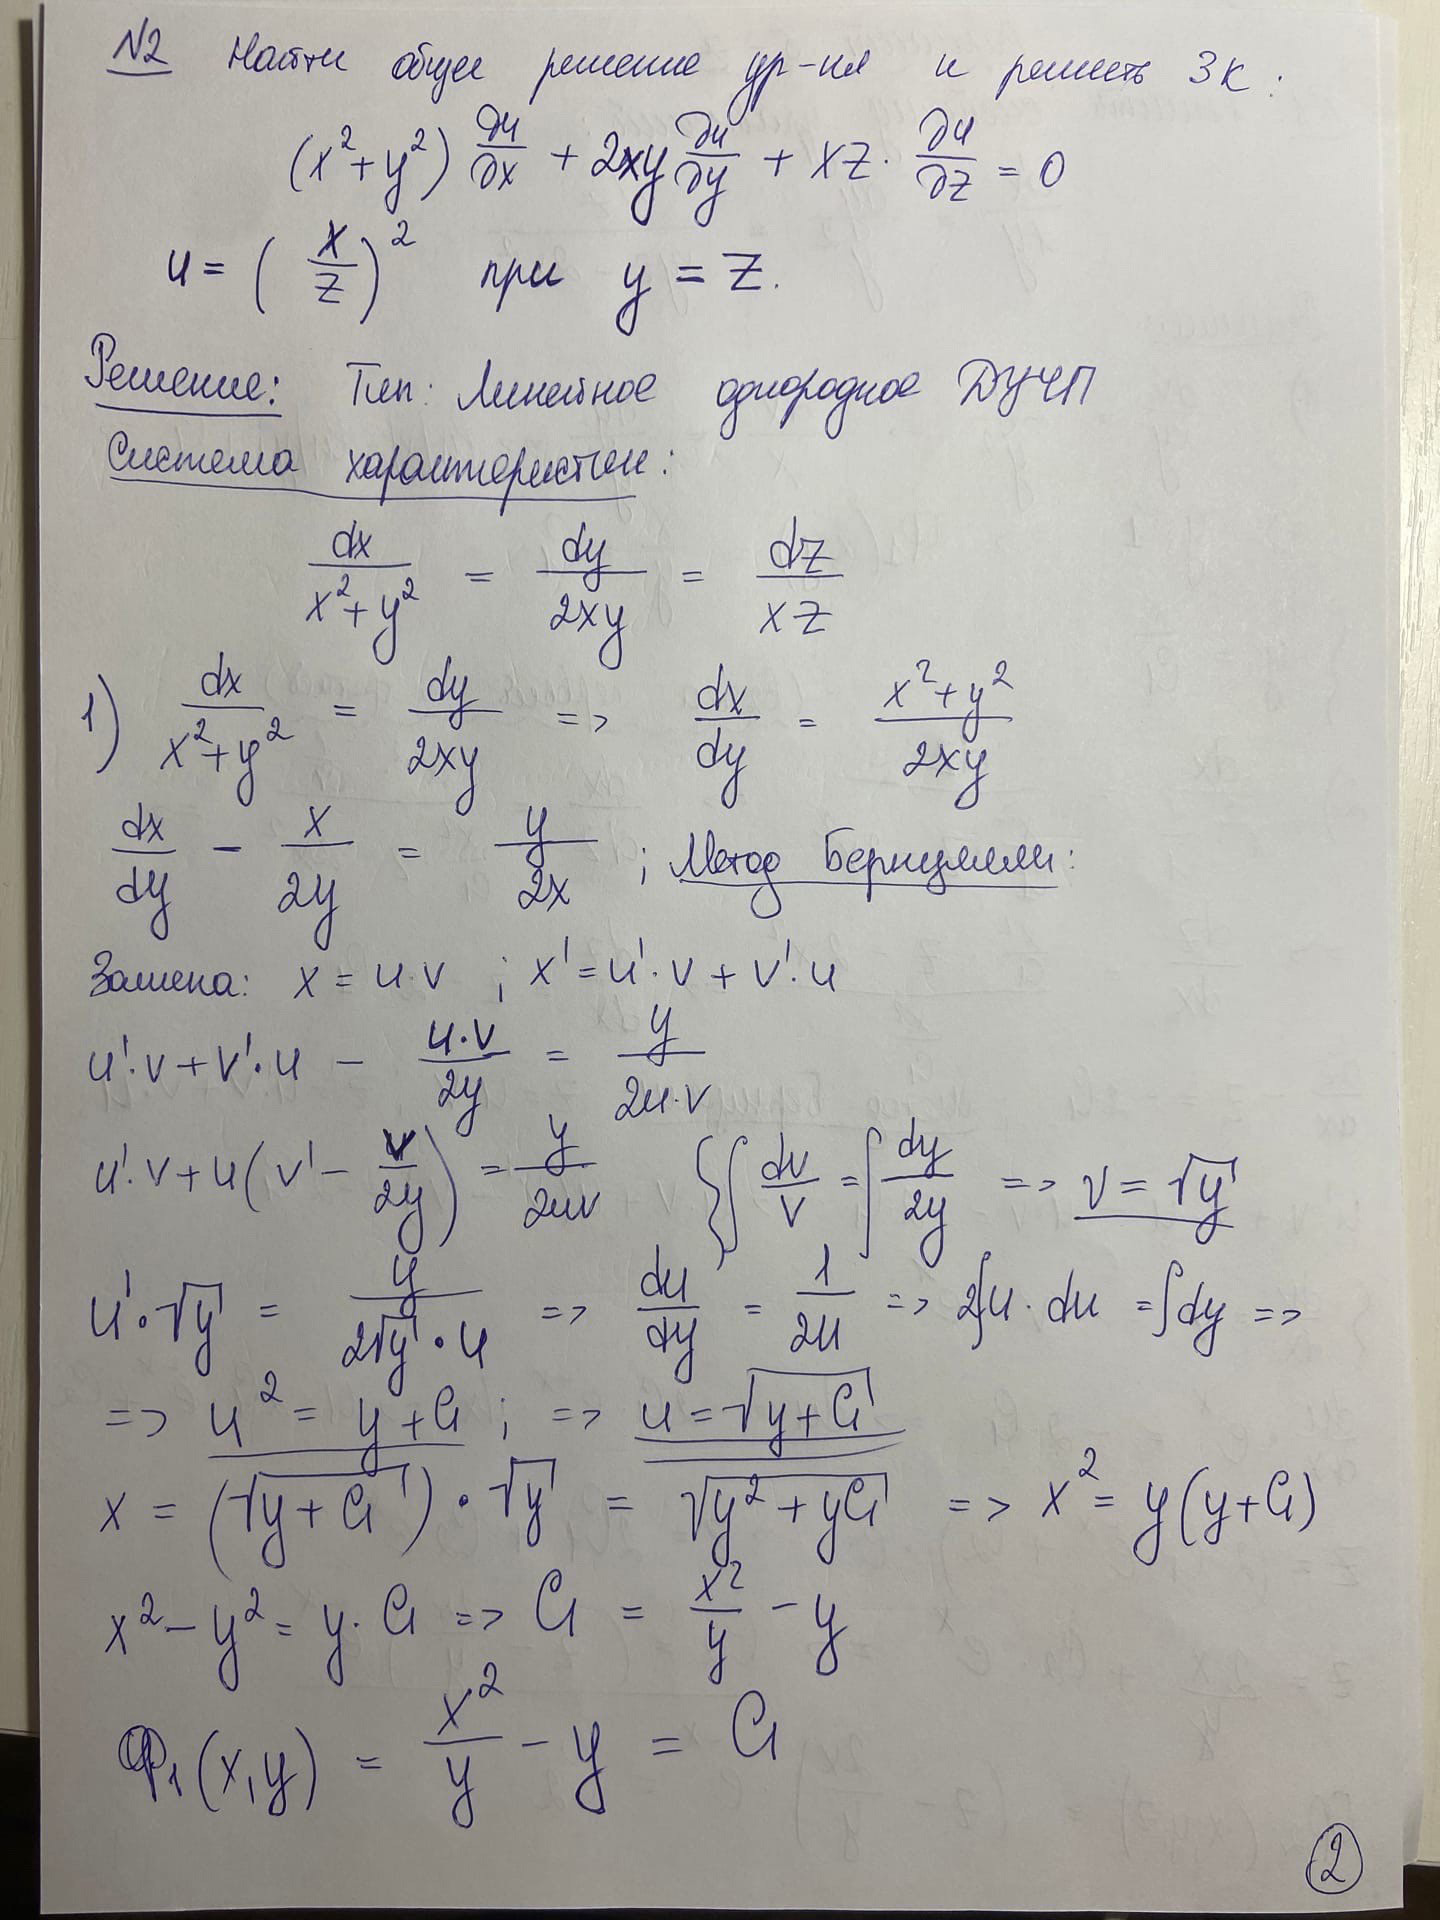 №2 Найти общее решение ур-ия и решить ЗК:
(x²+y²) ∂u/∂x + 2xy ∂u/∂y + xz· ∂u/∂z = 0
u = (x/z)² при y = z.
Решение: Тип: Линейное однородное ДУЧП
Система характеристик:
dx/(x²+y²) = dy/(2xy) = dz/(xz)
1) dx/(x²+y²) = dy/(2xy) => dx/dy = (x²+y²)/(2xy)
dx/dy - x/(2y) = y/(2x) ; Метод Бернулли:
Замена: x = u·v ; x' = u'·v + v'·u
u'·v + v'·u - (u·v)/(2y) = y/(2u·v)
u'·v + u(v' - v/(2y)) = y/(2uv) {∫ dv/v = ∫ dy/(2y) => v = √y
u'·√y = y/(2√y·u) => du/dy = 1/(2u) => 2∫u·du = ∫dy =>
=> u² = y+C₁ ; => u = √(y+C₁)
x = (√(y+C₁))·√y = √(y²+yC₁) => x² = y(y+C₁)
x² - y² = y·C₁ => C₁ = x²/y - y
Φ₁(x,y) = x²/y - y = C₁
2